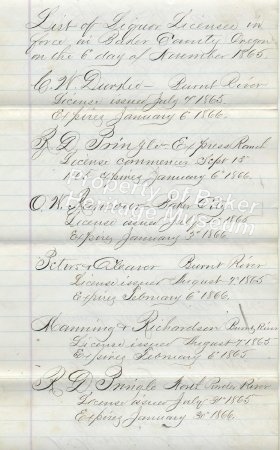 List of Liquor Licenses in
force in Baker County Oregon
on the 6th day of November 1865.
C. W. Durkee - Burnt River
License issued July 4th 1865.
Expires January 6th 1866.
R D Pringle Express Ranch
License commences Sept 15th
1865 expires January 6th 1866.
O. W. Baker City
License issued July 3d 1865
Expires January 3d 1866.
Peters & Eleanor Burnt River
License issued August 4th 1865
Expires February 6th 1866.
Manning & Richardson Burnt River
License issued August 7th 1865
Expires February 6th 1865
R D Pringle North Powder River
License issued July 3d 1865
Expires January 3d 1866.
Property of Baker
Heritage Museum